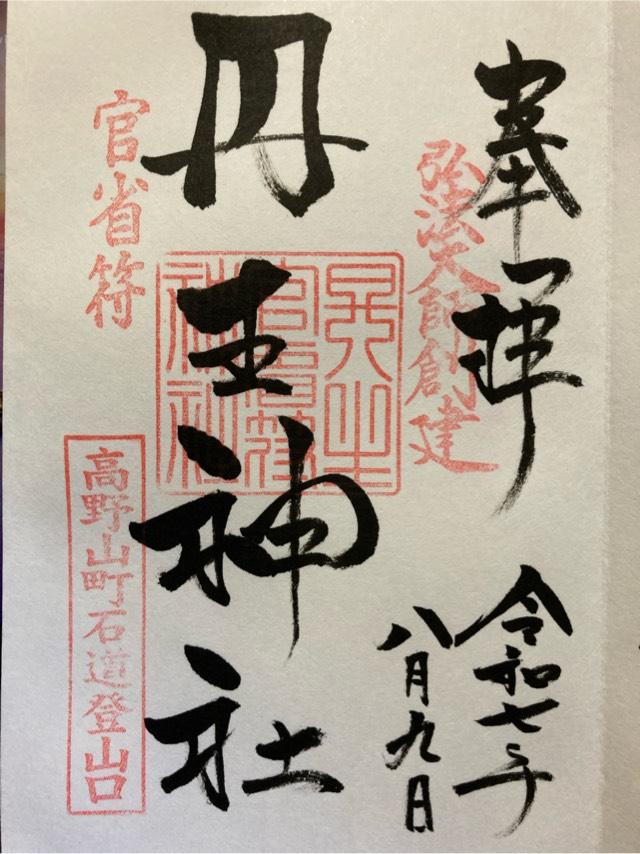 奉拝
弘法大師創建
令和七年
八月九日
丹生神社
丹生官省符神社
官省符
高野山町石道登山口